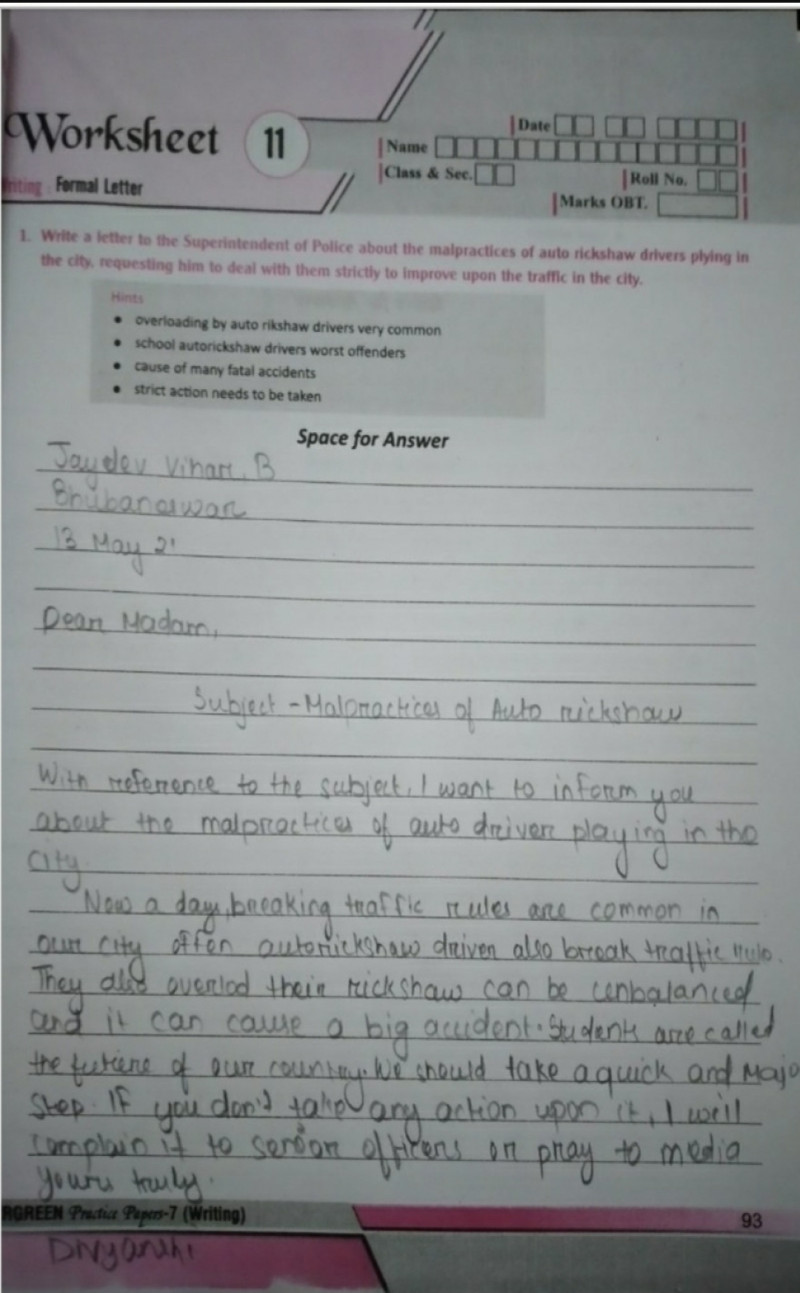 Worksheet 11
Date
Name
Class & Sec.
Roll No.
Marks OBT.
Formal Letter
1. Write a letter to the Superintendent of Police about the malpractices of auto rickshaw drivers plying in
the city, requesting him to deal with them strictly to improve upon the traffic in the city.
Hints
• overloading by auto rikshaw drivers very common
• school autorickshaw drivers worst offenders
• cause of many fatal accidents
• strict action needs to be taken
Space for Answer
Jaydev Vihar, B
Bhubaneswar
13 May 21
Dear Madam,
Subject - Malpractices of Auto rickshaw
With reference to the subject, I want to inform you
about the malpractices of auto driver playing in the
city
Now a day, breaking traffic rules are common in
our city offen autorickshaw driver also break traffic rule.
They also overlod their rickshaw can be unbalanced
and it can cause a big accident. Students are called
the future of our country. We should take a quick and Majo
step. If you don't take any action upon it, I will
complain it to officers or pray to media
yours truly.
RGREEN Practice Papers-7 (Writing)
93